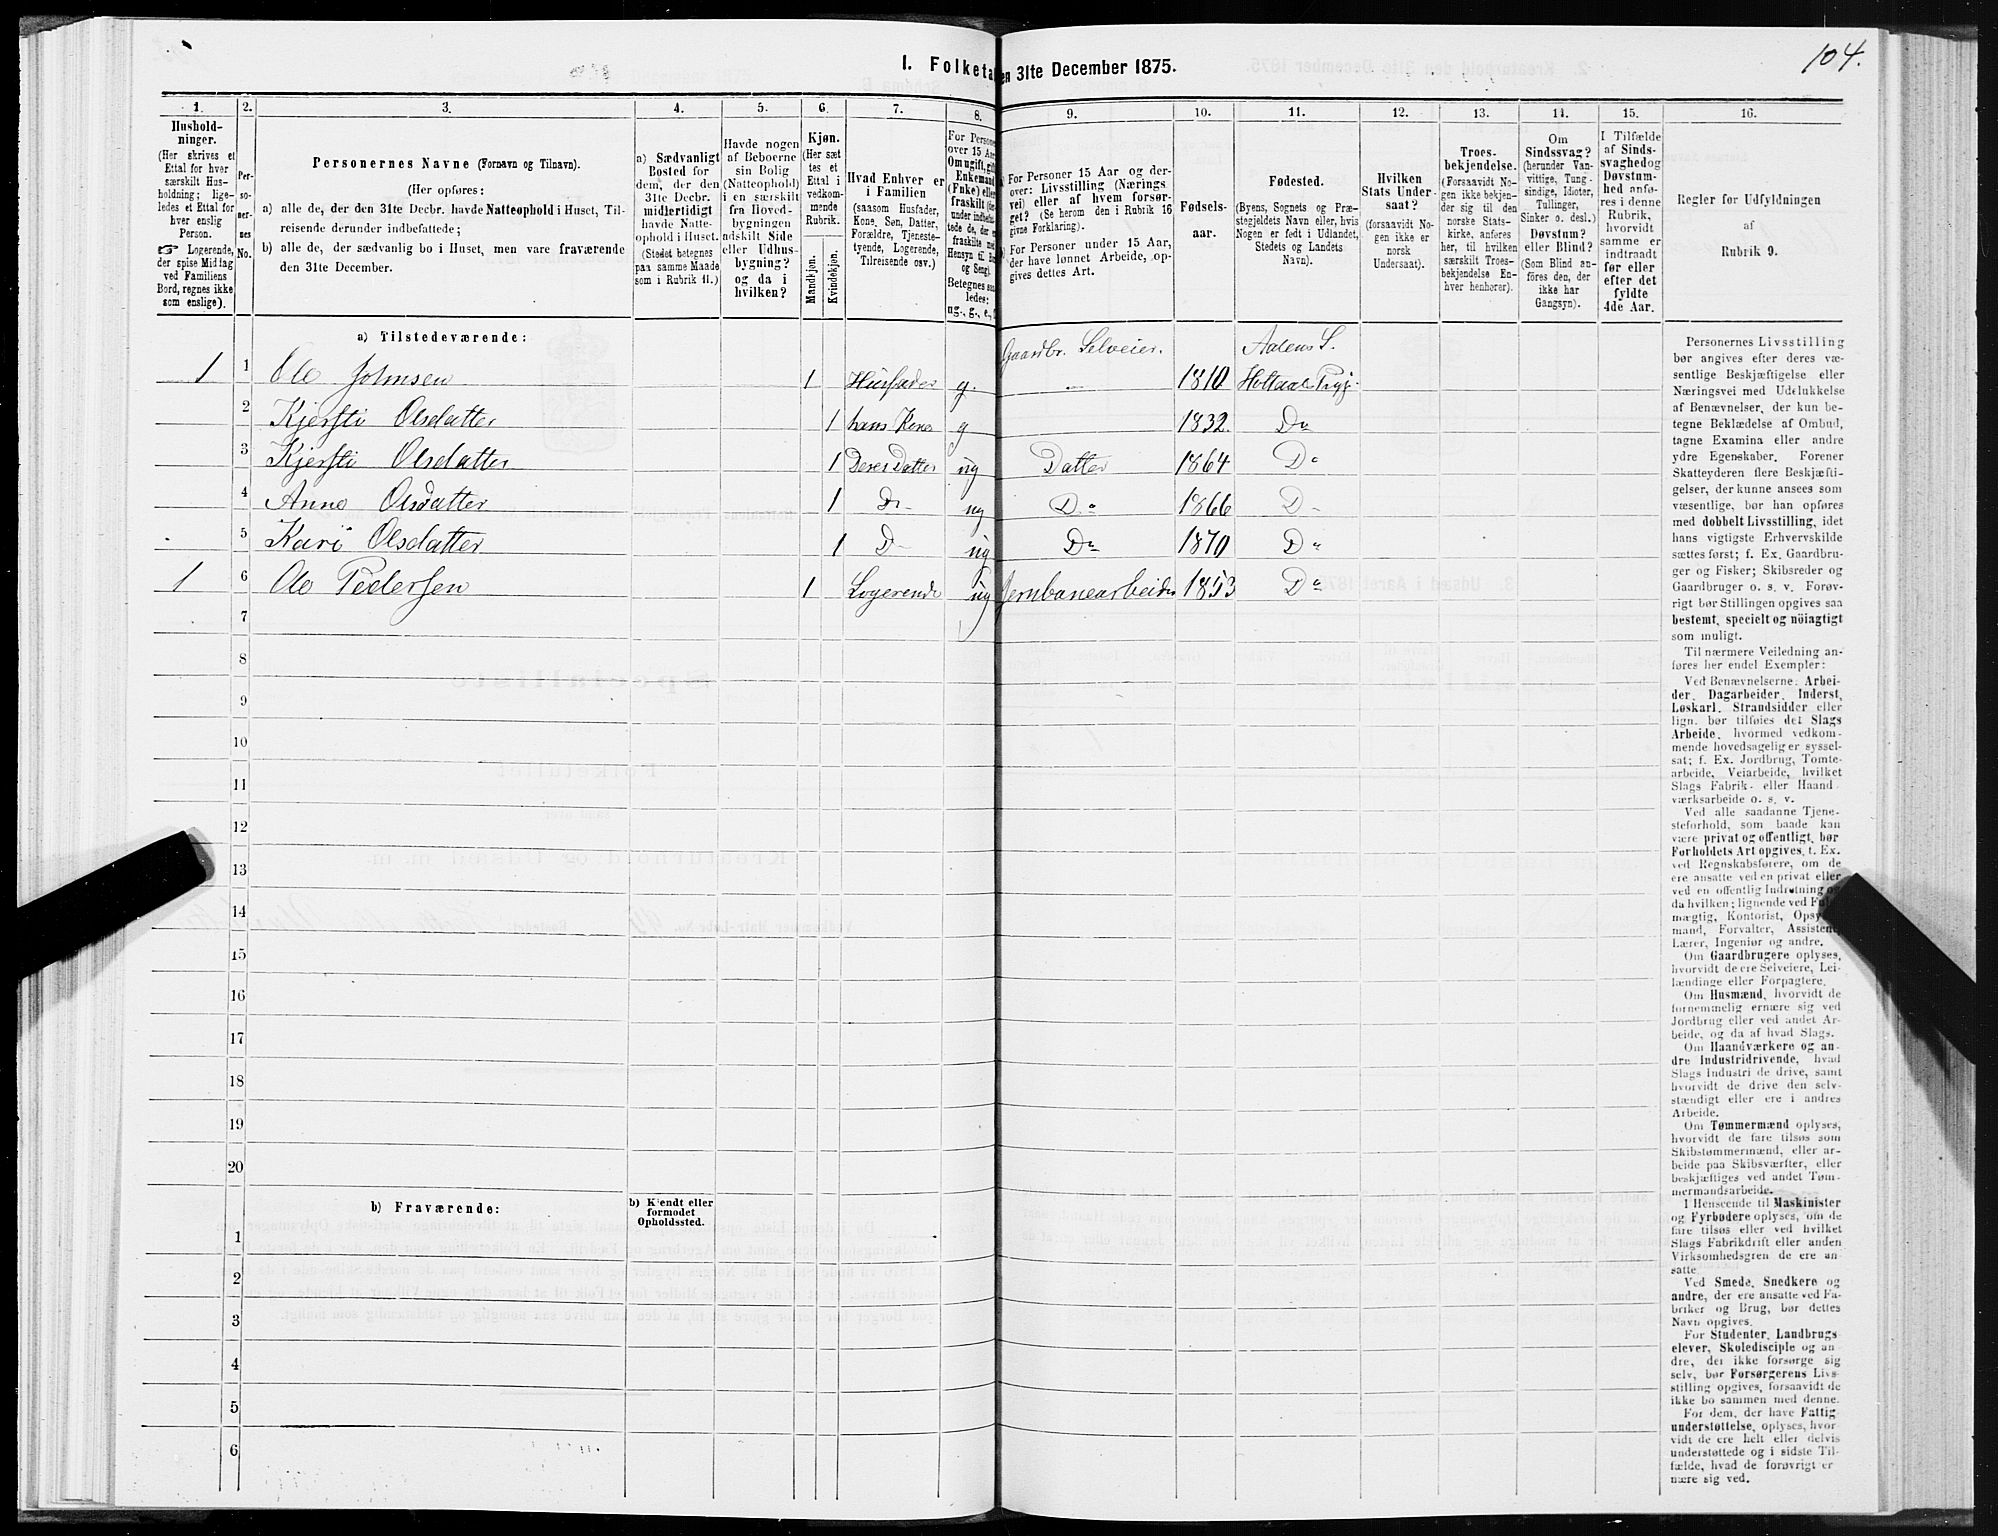 104.
I. Folketa
en 31te December 1875.
1.
2.
3.
4.
5.
6.
7.
8.
9.
10.
11.
12.
13.
14.
15.
16.
Hushold-
ninger.
(Her skrives et
Ettal for hver
særskilt Hus-
holdning; lige-
ledes et Ettal for
hver enslig
Person.
☞ Logerende,
der spise Middag
ved Familiens
Bord, regnes ikke
som enslige).
Per-
so-
ner-
nes
No.
Personernes Navne (Fornavn og Tilnavn).
(Her opføres:
a) alle de, der den 31te Decbr. havde Natteophold i Huset, Til-
reisende derunder indbefattede;
b) alle de, der sædvanlig bo i Huset, men vare fraværende
den 31te December.
a) Sædvanligt
Bosted for
dem, der den
31te Decbr.
midlertidigt
havde Natte-
ophold i Huset.
(Stedet betegnes
paa samme Maade
som i Rubrik 11.)
Havde nogen
af Beboerne
sin Bolig
(Natteophold)
i en særskilt
fra Hoved-
bygningen
adskilt Side
eller Udhus-
bygning?
og da i
hvilken?
Kjøn.
(Her sæt
tes et
Ettal i
vedkom-
mende
Rubrik.
Mandkjøn.
Kvindekjøn.
Hvad Enhver er
i Familien
(saasom Husfader,
Kone, Søn, Datter,
Forældre, Tjeneste-
tyende, Logerende,
Tilreisende osv.)
For Persone
over 15 Aa
Om ugift, gift
Enkemand
(Enke) eller
fraskilt
Betegnes saa
ledes:
ug., g., e.,
For Personer 15 Aar og der-
over: Livsstilling (Nærings-
vei) eller af hvem forsør-
get? (Se herom den i Rubrik 16
givne Forklaring).
b) For Personer under 15 Aar,
der have lønnet Arbeide, op-
gives dettes Art.
Fødsels-
aar.
Fødested.
(Byens, Sognets og Præ-
stegjeldets Navn eller, hvis
Nogen er født i Udlandet,
Stedets og Landets
Navn).
Hvilken
Stats Under-
saat?
(forsaavidt No-
gen ikke er
norsk
Undersaat).
Troes-
bekjendelse.
(Forsaavidt No-
gen ikke bekjen-
der sig til den
norske Stats-
kirke, anføres
her, til hvilken
særskilt Troes-
bekjendelse En-
hver henhorer).
Om
Sindssvag?
(herunder Van-
vittige, Tung-
sindige, Idioter,
Tullinger,
Sinker o. desl.)
Døvstum?
eller Blind?
(Som Blind an-
föres den, der
ikke har
Gangsyn).
I Tilfælde
af Sinds-
svaghed og
Døvstum-
hed anfø-
res i denne
Rubrik,
hvorvidt
samme er
indtraadt
før eller
efter det
fyldte
4de Aar.
Regler for Udfyldningen
af
Rubrik 9.
a) Tilstedeværende:
Gaardbr. Selveier. Aalens S.
1 1 Ole Johnsen 1 Husfader g. „ 1810 Holtaal Prgj.
2 Kjersti Olsdatter 1 hans Kone g 1832. Do
3 Kjersti Olsdatter 1 Deres Datter ug Datter 1864 Do
4 Anne Olsdatter 1 Do ug Do 1866 Do
5 Kari Olsdatter 1 Do ug Do 1870 Do
1 6 Ole Pedersen 1 Logerende ug Jernbanearbeider 1853 Do
7
8
9
10
11
12
13
14
15
16
17
18
19
20
b) Fraværende:
b) Kjendt eller
formodet
Opholdssted.
1
2
3
4
5
6
Personernes Livsstilling
bør angives efter deres væ-
sentlige Beskjæftigelse eller
Næringsvei med Udelukkelse
af Benævnelser, der kun be-
tegne Beklædelse af Ombud,
tagne Examina eller andre
ydre Egenskaber. Forener
Skatteyderen flere Beskjæfti-
gelser, der kunne ansees som
væsentlige, bør han opføres
med dobbelt Livsstilling, idet
hans vigtigste Erhvervskilde
sættes først; f. Ex. Gaardbru-
ger og Fisker; Skibsreder og
Gaardbruger o. s. v. Forøv-
rigt bør Stillingen opgives saa
bestemt, specielt og nöiagtigt
som muligt.
Til nærmere Veiledning an-
føres her endel Exempler:
Ved Benævnelserne: Arbei-
der, Dagarbeider, Inderst,
Løskarl, Strandsidder eller
lign. bør tilføies det Slags
Arbeide, hvormed vedkom-
mende hovedsagelig er syssel-
sat; f. Ex. Jordbrug, Tomte-
arbeide, Veiarbeide, hvilket
Slags Fabrik- eller Haand
værksarbeide o. s. v.
Ved alle saadanne Tjene-
steforhold, som baade kan
være privat og offentligt, bør
Forholdets Art opgives, t. Ex.
ved Regnskabsførere, om de
ere ansatte ved en privat eller
ved en offentlig Indretning og
da hvilken; lignende ved Ful
mægtig, Kontorist, Opsy
mand, Forvalter, Assistent
Lærer, Ingeniør og andre.
Om Gaardbrugere oplyses,
hvorvidt de ere Selveiere, Lei-
lændinge eller Forpagtere.
Om Husmænd, hvorvidt de
fornemmelig ernære sig ved
Jordbrug eller ved andet Ar-
beide, og da af hvad Slags.
Om Haandværkere og an-
dre Industridrivende, hvad
Slags Industri de drive, samt
hvorvidt de drive den selv-
stændigt eller ere i andres
Arbeide.
Om Tømmermænd oplyses,
hvorvidt de fare tilsøs som
Skibstømmermænd, eller ar-
beide paa Skibsværfter, eller
beskjæftiges ved andet Tøm-
mermandsarbeide.
I Henseende til Maskinister
og Fyrbødere oplyses, om de
fare tilsøs eller ved hvilket
Slags Fabrikdrift eller anden
Virksomhedsgren de ere an-
satte.
Ved Smede, Snedkere og
andre, der ere ansatte ved Fa-
briker og Brug, bør dettes
Navn opgives.
For Studenter, Landbrugs
elever, Skoledisciple og an-
dre, der ikke forsørge sig
selv, bør Forsørgerens Livs-
stilling opgives, forsaavidt de
ikke bo sammen med denne.
For dem, der have Fattig
understøttelse, oplyses, hvor-
vidt de ere helt eller delvis
understøttede og i sidste Til-
fælde, hvad de forøvrigt er
nære sig ved.